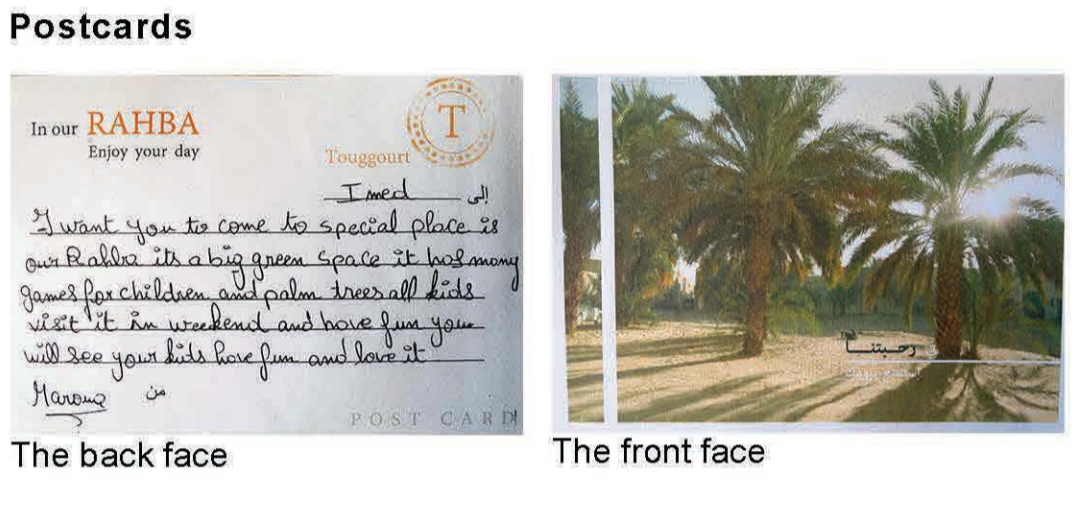 Postcards
In our RAHBA
Enjoy your day
T
Touggourt
Imed إلى
I want you to come to special place is
our Rahba its a big green space it has many
games for children and palm trees all kids
visit it in weekend and have fun you
will see your kids have fun and love it
Maroua من
POST CARD
The back face
رحبتنا
The front face